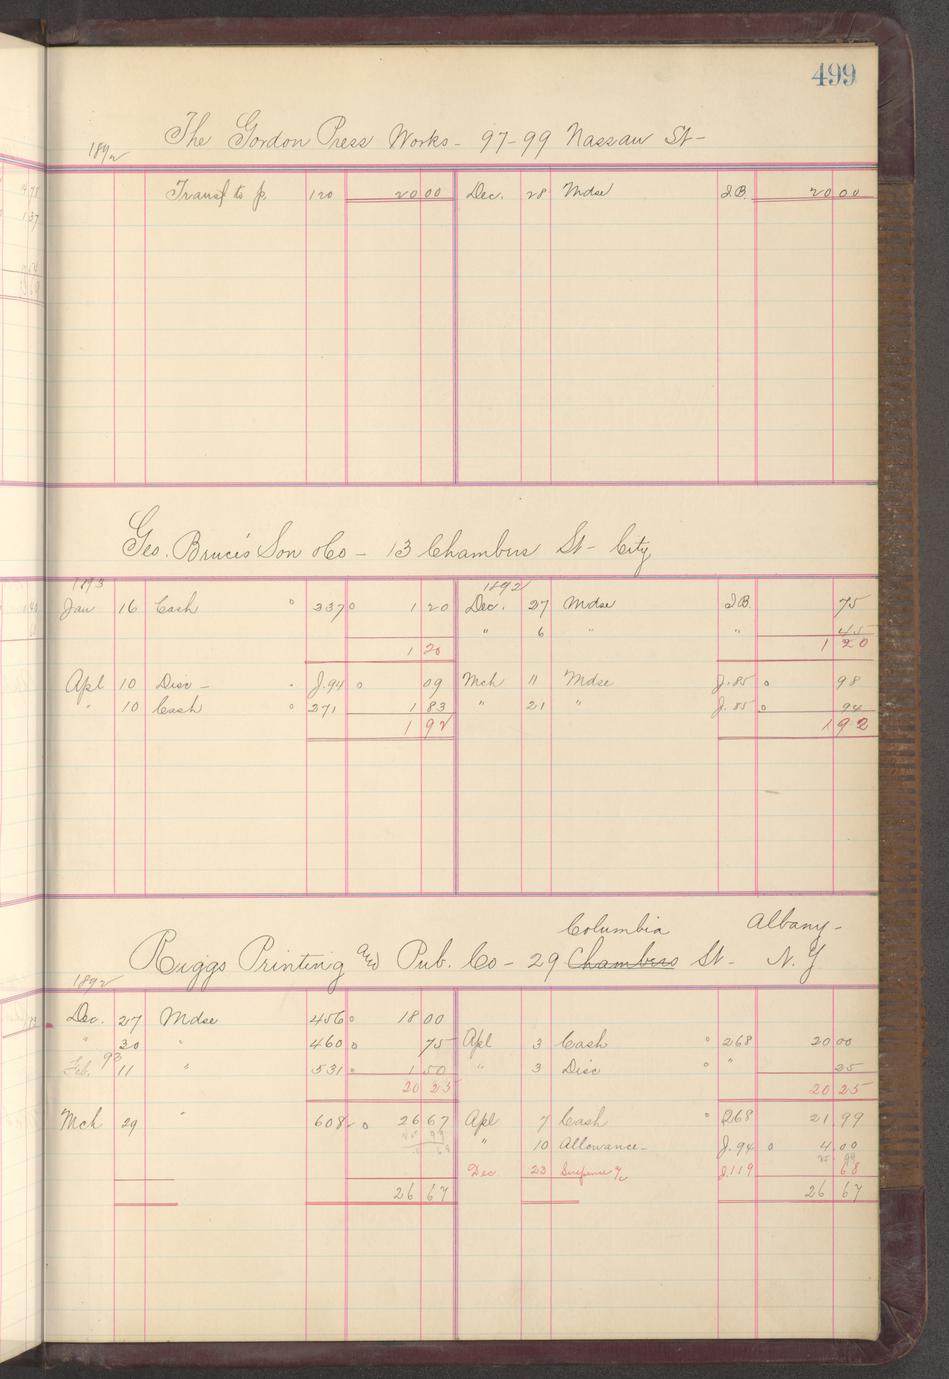 499
The Gordon Press Works - 97-99 Nassau St-
1892
Transf to p. 120 20 00 Dec. 28 Mdse I.B. 20 00
Geo. Bruce's Son & Co - 13 Chambers St - City
1893 1892
Jan 16 Cash 337 1 20 Dec. 27 Mdse I.B. 75
" 6 " " 45
1 20 1 20
Apl 10 Disc - J.94 09 Mch 11 Mdse J.85 98
" 10 Cash 271 1 83 " 21 " J.85 94
1 92 1 92
Columbia Albany-
Riggs Printing and Pub. Co - 29 Chambers St - N.Y
1892
Dec. 27 Mdse 456 18 00
" 30 " 460 75 Apl 3 Cash 268 20 00
Feb. 93 11 " 531 1 50 " 3 Disc " 25
20 25 20 25
Mch 29 " 608 26 67 Apl 7 Cash 268 21 99
" 10 Allowance - J.94 4 00
25 99
Dec 23 Suspense a/c J.119 68
26 67 26 67